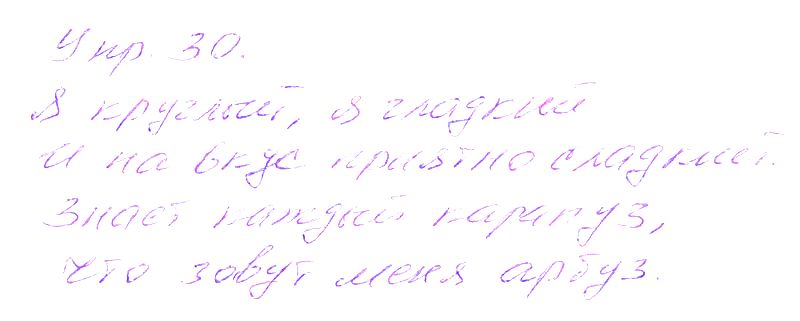 Упр. 30.
Я круглый, я гладкий
И на вкус приятно сладкий.
Знает каждый карапуз,
Что зовут меня арбуз.